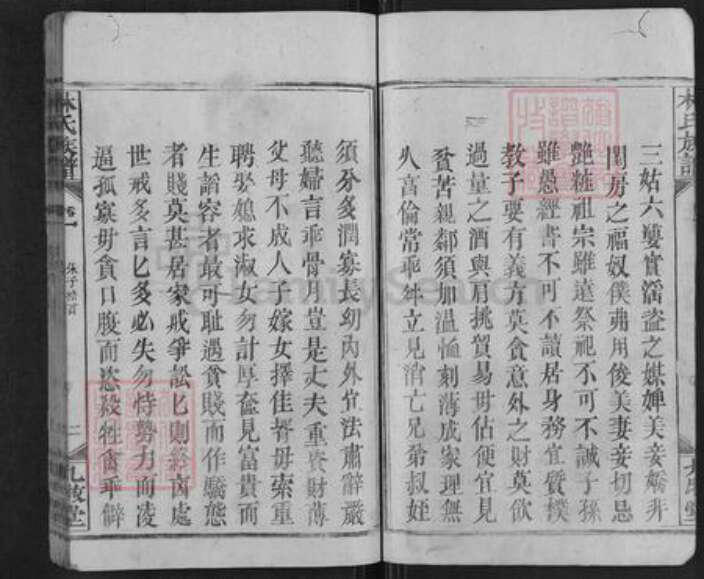 林氏族譜
三姑六婆實滛盗之媒婢美妾嬌非
閨房之福奴僕弗用俊美妻妾切忌
艷粧祖宗雖遠祭祀不可不誠子孫
雖愚經書不可不讀居身務宜質樸
教子要有義方莫貪意外之財莫飲
過量之酒與肩挑貿易毋佔便宜見
貧苦親鄰須加温恤刻薄成家理無
久享倫常乖舛立見消亡兄弟叔姪
須分多潤寡長幼內外宜法肅辭嚴
聽婦言乖骨肉豈是丈夫重資財薄
父母不成人子嫁女擇佳壻毋索重
聘娶媳求淑女勿計厚奩見富貴而
生謟容者最可耻遇貧賤而作驕態
者賤莫甚居家戒爭訟訟則終凶處
世戒多言言多必失勿恃勢力而凌
逼孤寡毋貪口腹而恣殺牲禽乖僻
林氏族譜
卷一
朱子格言
二
九牧堂
FamilySearch